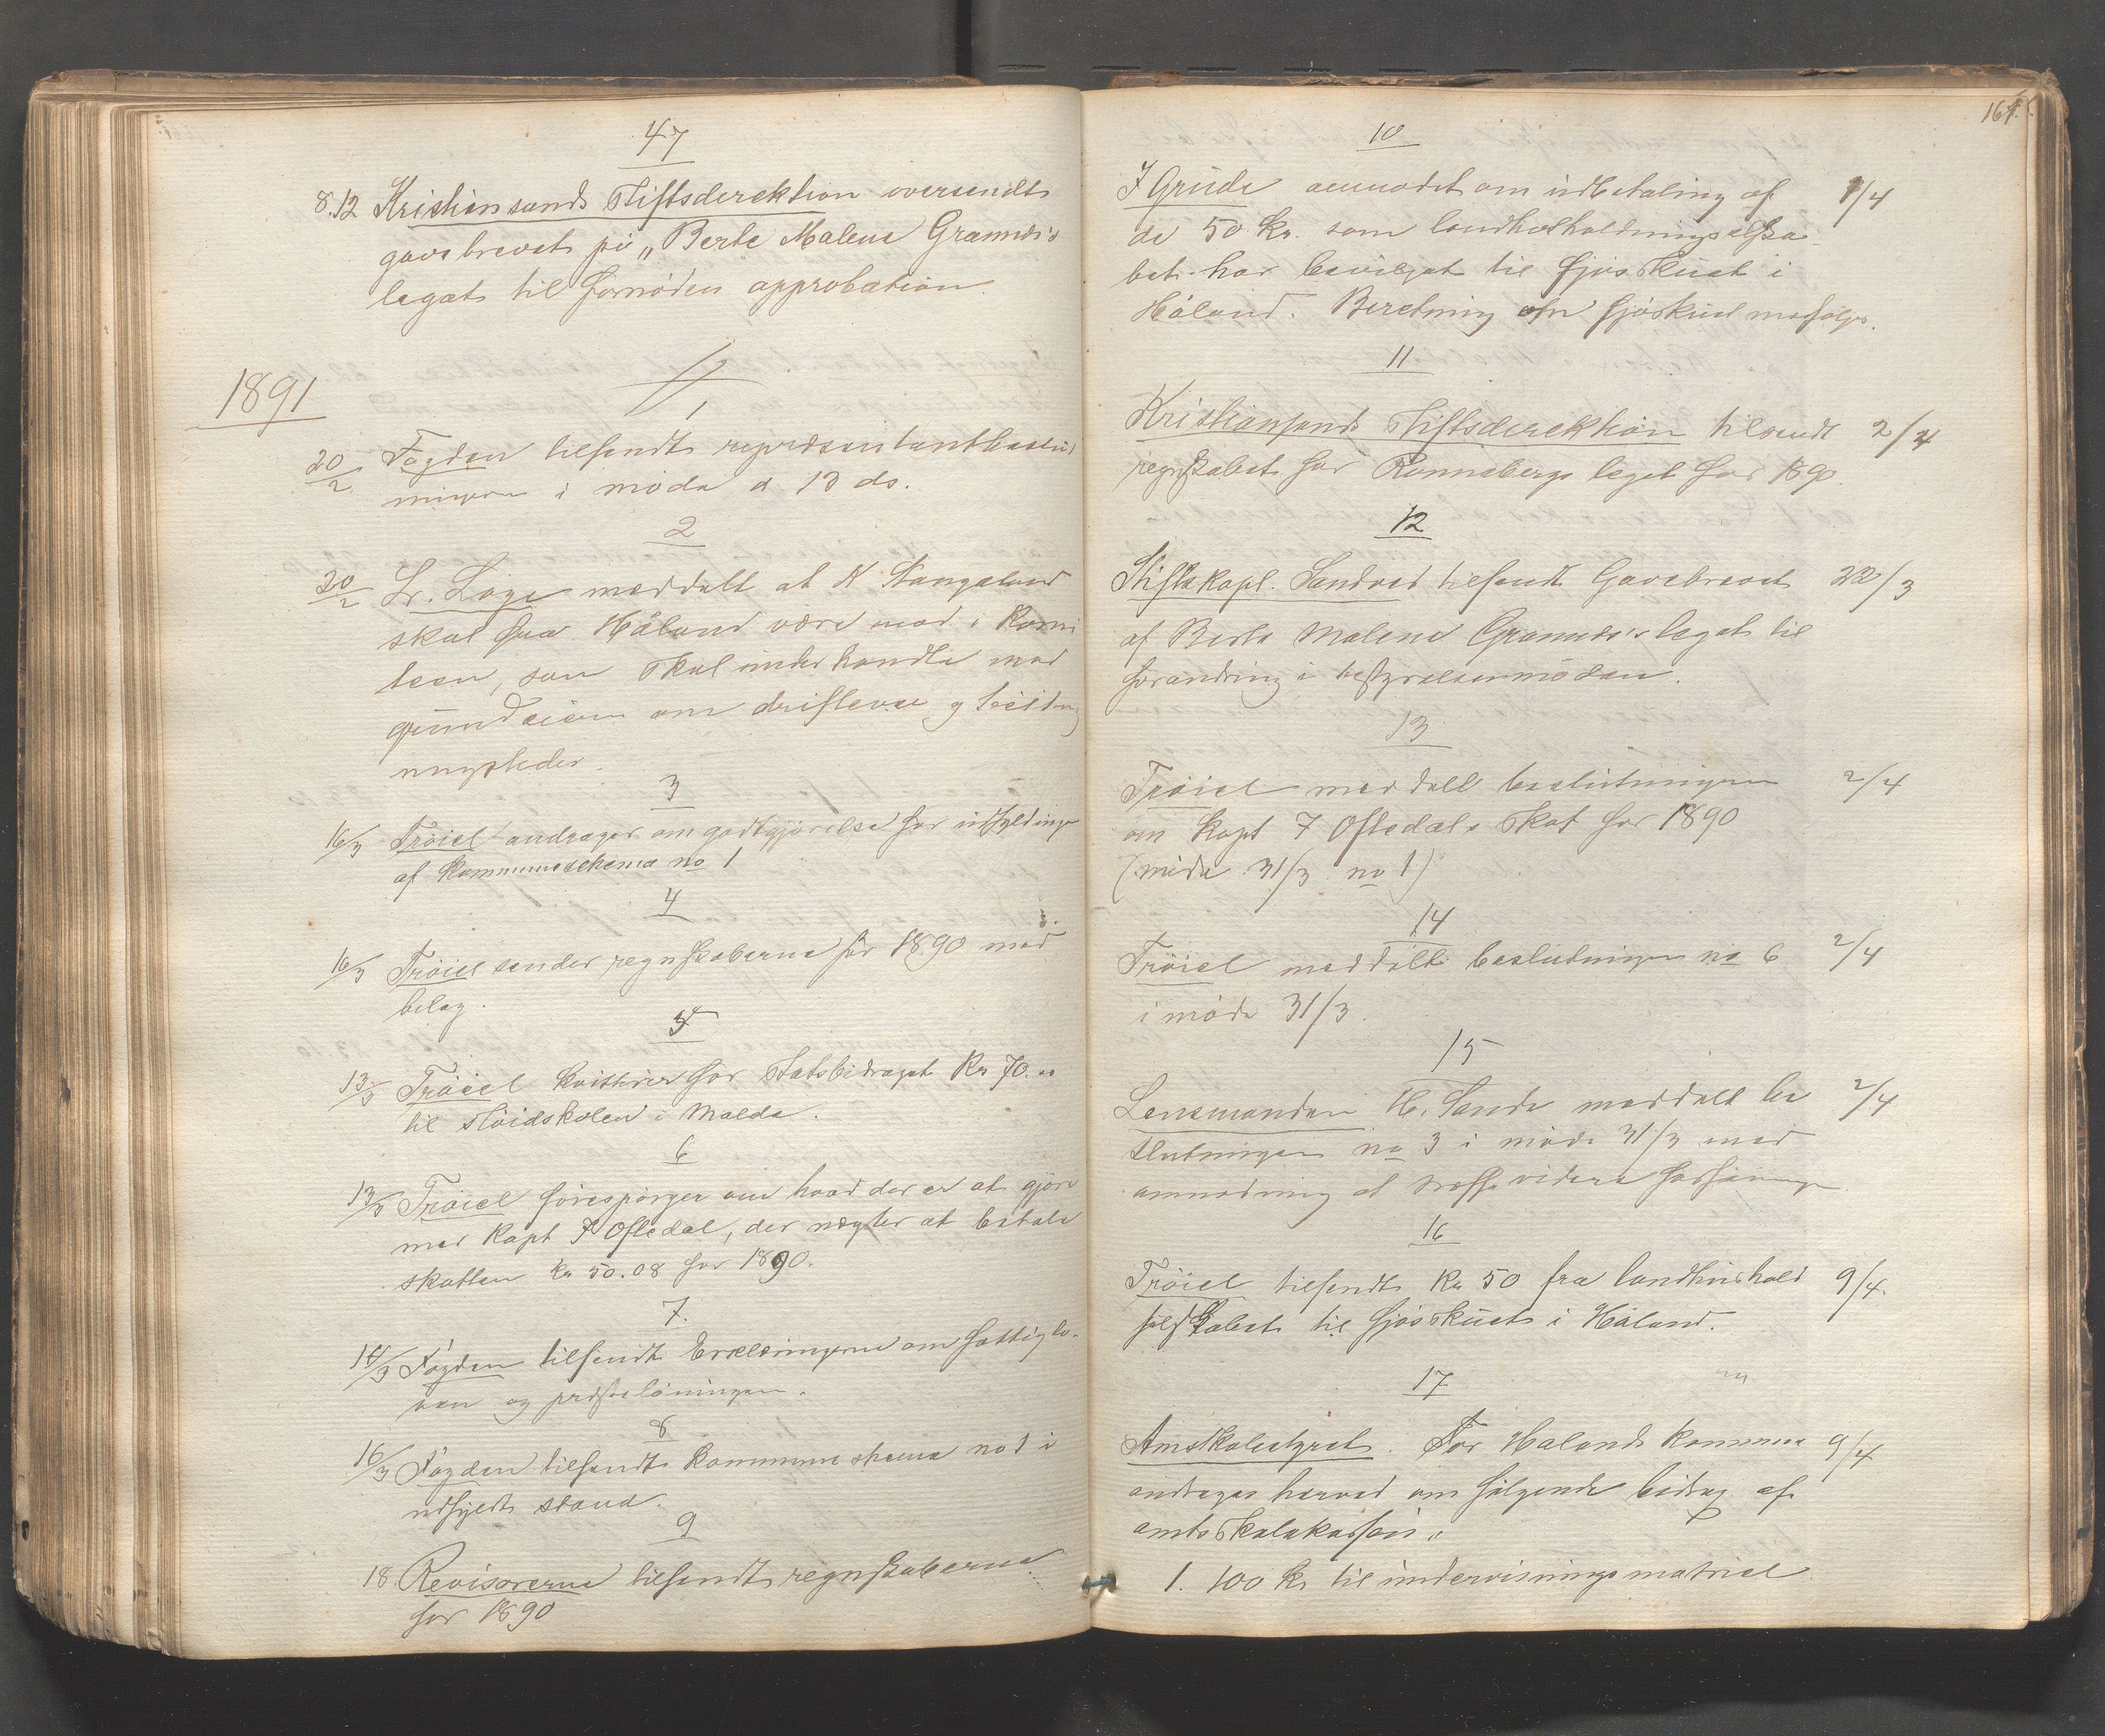 47
8.12 Kristiansands Stiftsderektion oversendt
gavebrevet på „Berte Malene Grannæs's
legat til fornöden approbation.
1891
1
20/2 Fogden tilsendt repræsentantbeslut
ningerne i möde d 13 ds.
2
20/2 Lr. Löge meddelt at N Stangeland
skal fra Håland være med i Komi
teen, som skal underhandle med
grundeierne om driftevei og
3
16/3 Tröiel andrager om godtgjörelse for udfyldinge
af Kommuneschema no 1
4
16/3 Tröiel sender regnskaberne för 1890 med
bilag.
5
13/3 Tröiel kvitterer for Statsbidraget Kr 70.00
til Slöidskolen i Malde.
6
13/3 Tröiel forespörger om hvad der er at gjöre
med Kapt T Oftedal, der nægter at betale
skatten kr 50.08 for 1890.
7.
14/3 Fogden tilsendt Erklæringerne om fattiglo-
ven og prestelöningen.
8
16/3 Fogden tilsendt Kommune skema no 1 i
udfyldt stand.
9
18. Revisorerne tilsendt regnskaberne
for 1890
161.
10
I Grude anmodet om udbetaling af 1/4
de 50 Kr. som landhusholdningselska-
bet har bevilget til fjösskuet i
Håland. Beretning om fjöskuet medfölger.
11
Kristiansands Stiftsderektion tilsendt 2/4
regnskabet for Rönnebergs legat for 1890.
12
Stiftskapl. Sandved tilsendt Gavebrevet 22/3
af Berte Malene Grannæs's legat til
forandring i bestyrelsesmöden.
13
Tröiel meddelt beslutningen 2/4
om Kapt T Oftedals Skat for 1890
(möde 31/3 no 1)
14
Tröiel meddelt beslutningen no 6 2/4
i möde 31/3.
15
Lensmanden H. Sande meddelt be 2/4
slutningen no 3 i möde 31/3 med
anmodning at træffe videre forföininger
16
Tröiel tilsendt Kr 50 fra landhushold 9/4.
selskabet til fjösskuet i Håland.
17
Amtskolestyret. For Halands kommune 9/4
andrages herved om fölgende bidrag af
amtsskolekassen:
1. 100 Kr til undervisningsmatriel.